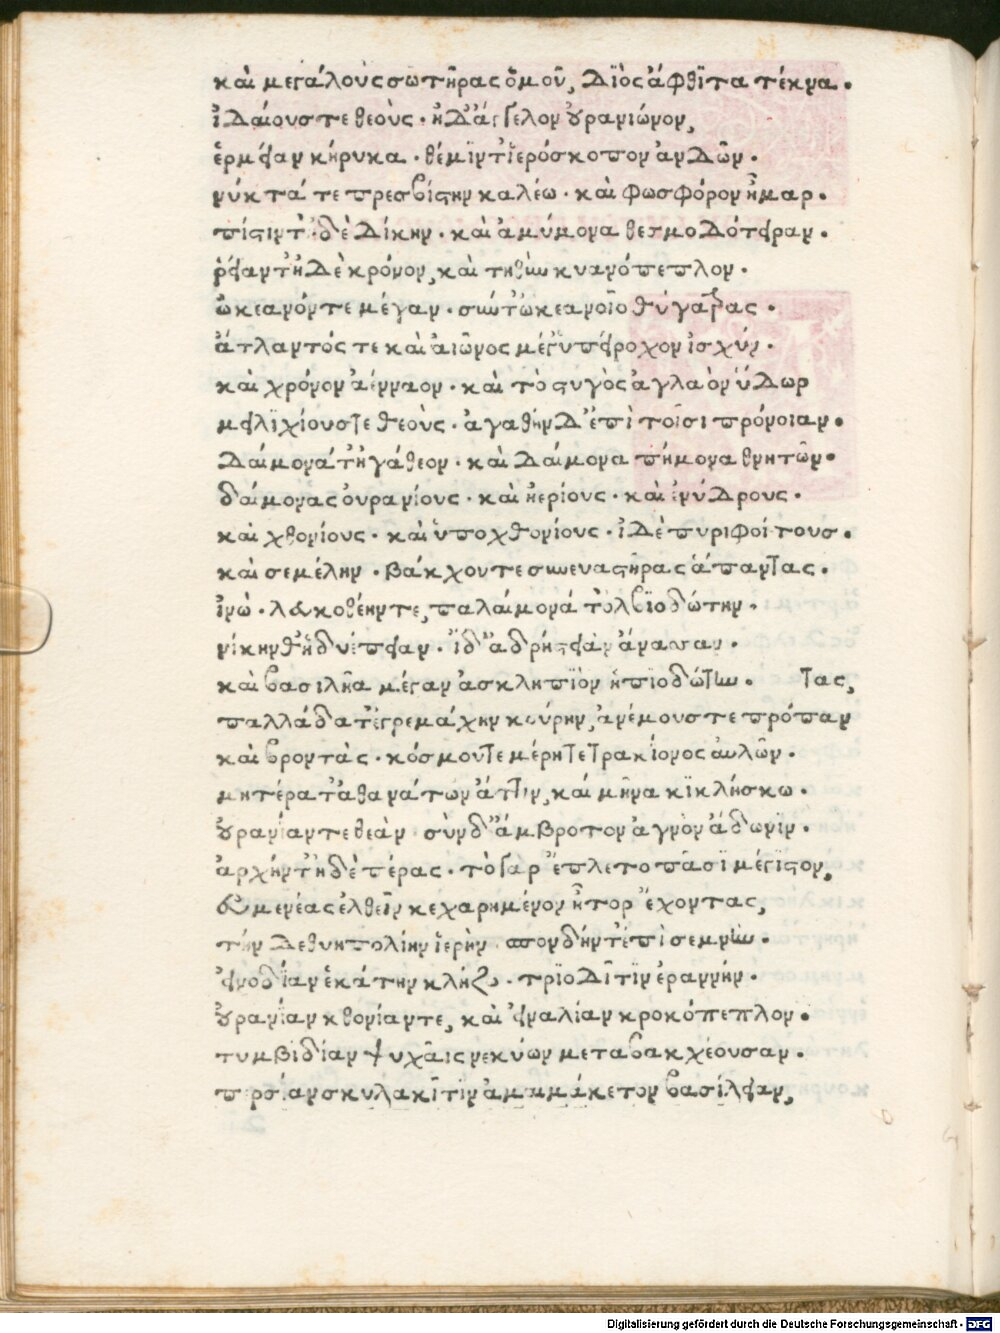 καὶ μεγάλους σωτῆρας ὅμοῦ, Διὸς ἄφθιτα τέκνα.
ἰδαίους τε θεοὺς. ἠδ' ἄγγελον οὐρανιώνων,
ἑρμείαν κήρυκα. θέμιν τ' ἱερόσκοπον ἀνδῶν.
νύκτά τε πρεσβίστην καλέω. καὶ φωσφόρον ἦμαρ.
πίστιν τ' ἠδὲ Δίκην. καὶ ἀμύμονα θεσμοδότειραν.
ῥείαν τ' ἠδὲ κρόνον, καὶ τηθὺν κυανόπεπλον.
ὠκεανόν τε μέγαν. σύν τ' ὠκεανοῖο θύγατρας.
ἄτλαντός τε καὶ αἰῶνος μέγ' ὑπείροχον ἰσχύν.
καὶ χρόνον ἀένναον. καὶ τὸ στυγὸς ἀγλαὸν ὕδωρ
μειλιχίους τε θεοὺς. ἀγαθήν δ' ἐπὶ τοῖσι πρόνοιαν.
Δαίμονά τ' ἠγάθεον. καὶ Δαίμονα πήμονα θνητῶν.
δαίμονας οὐρανίους. καὶ ἠερίους. καὶ ἐνύδρους.
καὶ χθονίους. καὶ ὑποχθονίους. ἰδὲ πυριφοίτους.
καὶ σεμέλην. βάκχου τε συνευαστῆρας ἅπαντας.
ἰνὼ. λευκοθέην τε, παλαίμονά τ' ὀλβιοδώτην.
νίκην θ' ἡδυέπειαν. ἰδ' ἀδρήστειαν ἄνασσαν.
καὶ βασιλῆα μέγαν ἀσκληπιὸν ἠπιοδώτην. τας,
παλλάδα τ' ἐγρεμάχην κούρην, ἀνέμους τε πρόπαν
καὶ βροντὰς. κόσμου τε μέρη τετρακίονος αὐλῶν.
μητέρα τ' ἀθανάτων ἄττιν, καὶ μῆνα κικλήσκω.
οὐρανίαν τε θεὰν σὺν δ' ἄμβροτον ἁγνὸν ἄδωνιν.
ἀρχήν τ' ἠδὲ πέρας. τὸ γὰρ ἔπλετο πᾶσι μέγιστον,
εὐμενέας ἐλθεῖν κεχαρημένον ἦτορ ἔχοντας,
τήν δε θυηπολίην ἱερὴν. σπονδήν τ' ἐπὶ σεμνὴν.
εἰνοδίαν ἑκάτην κλήζω. τριοδῖτιν ἐραννήν.
οὐρανίαν χθονίαν τε, καὶ εἰναλίαν κροκόπεπλον.
τυμβιδίαν ψυχαῖς νεκύων μετα βακχέουσαν.
περσίαν σκυλακῖτιν ἀμαιμάκετον βασίλειαν,
Digitalisierung gefördert durch die Deutsche Forschungsgemeinschaft - DFG